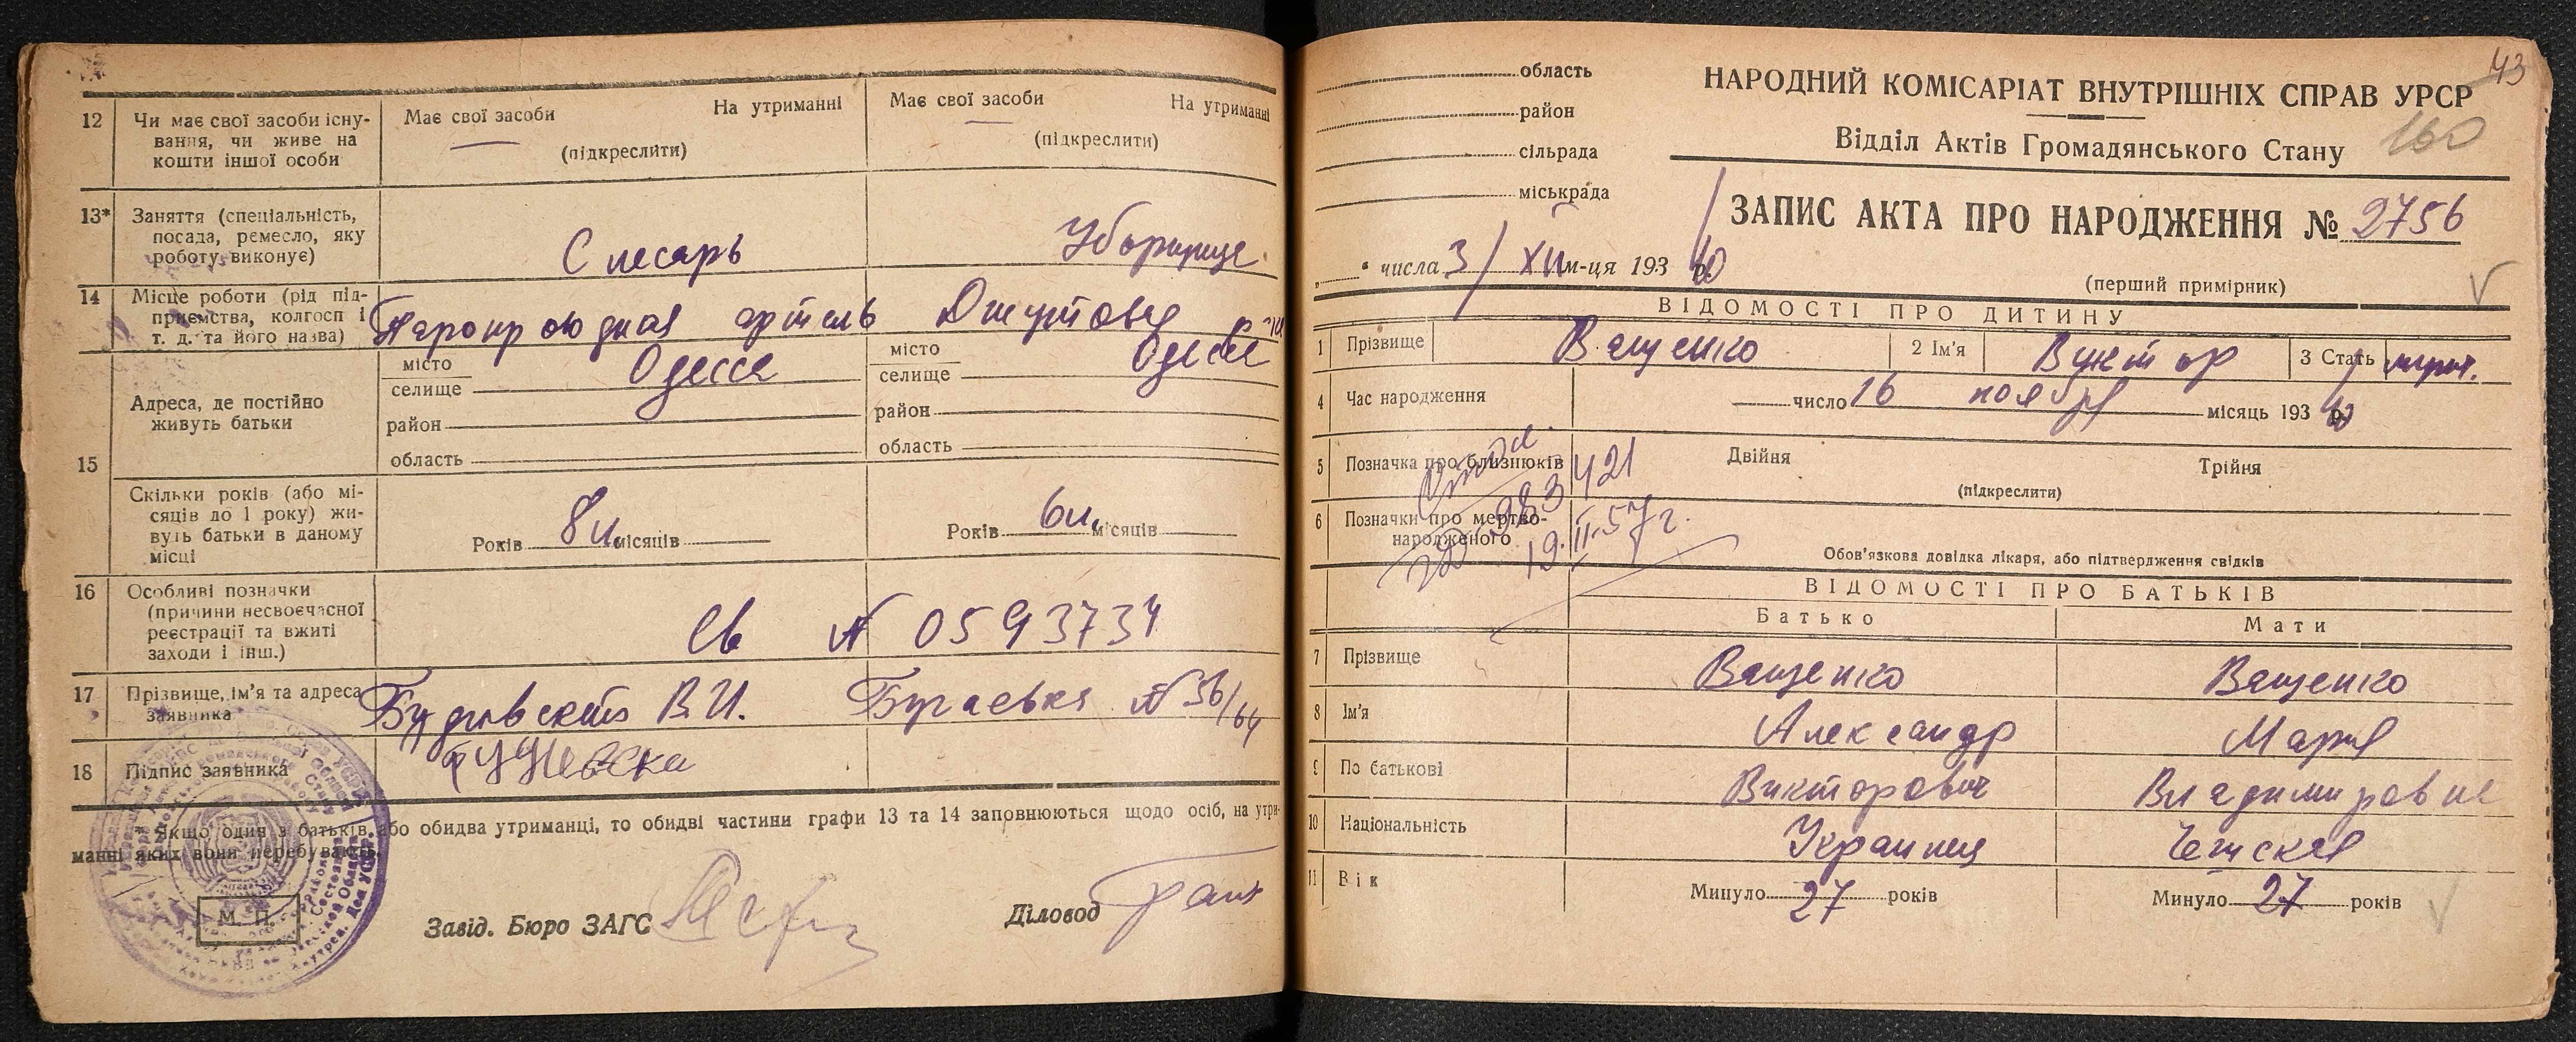 12 Чи має свої засоби існу-
вання, чи живе на
кошти іншої особи
Має свої засоби На утриманні
(підкреслити)
Має свої засоби На утриманні
(підкреслити)
13* Заняття (спеціальність,
посада, ремесло, яку
роботу виконує)
Слесарь
Уборщица
14 Місце роботи (рід під-
приємства, колгосп і
т. д. та його назва)
артель
Джутовая
15 Адреса, де постійно
живуть батьки
місто
селище Одесса
район
область
місто
селище Одесса
район
область
Скільки років (або мі-
сяців до 1 року) жи-
вуть батьки в даному
місці
Років 8 л. місяців
Років 6 л. місяців
16 Особливі позначки
(причини несвоєчасної
реєстрації та вжиті
заходи і інш.)
Св № 0593734
17 Прізвище, ім'я та адреса
заявника
В. И. Бугаевка № 36/64
18 Підпис заявника
* Якщо один з батьків або обидва утриманці, то обидві частини графи 13 та 14 заповнюються щодо осіб, на утри-
манні яких вони перебувають.
М. П.
Завід. Бюро ЗАГС
Діловод
43
область
район
сільрада
міськрада
НАРОДНИЙ КОМІСАРІАТ ВНУТРІШНІХ СПРАВ УРСР
160
Відділ Актів Громадянського Стану
ЗАПИС АКТА ПРО НАРОДЖЕННЯ № 2756
„ " числа 3/XII м-ця 193 40 р.
(перший примірник)
ВІДОМОСТІ ПРО ДИТИНУ
1 Прізвище Ващенко 2 Ім'я Виктор 3 Стать муж.
4 Час народження число 16 ноября місяць 193 40 р.
5 Позначка про близнюків Двійня Трійня
(підкреслити)
421
6 Позначки про мертво-
народженого
19.II-57 г.
Обов'язкова довідка лікаря, або підтвердження свідків
ВІДОМОСТІ ПРО БАТЬКІВ
Батько Мати
7 Прізвище Ващенко Ващенко
8 Ім'я Александр Мария
9 По батькові Викторович Владимировна
10 Національність Украинец Чешская
11 Вік Минуло 27 років Минуло 27 років